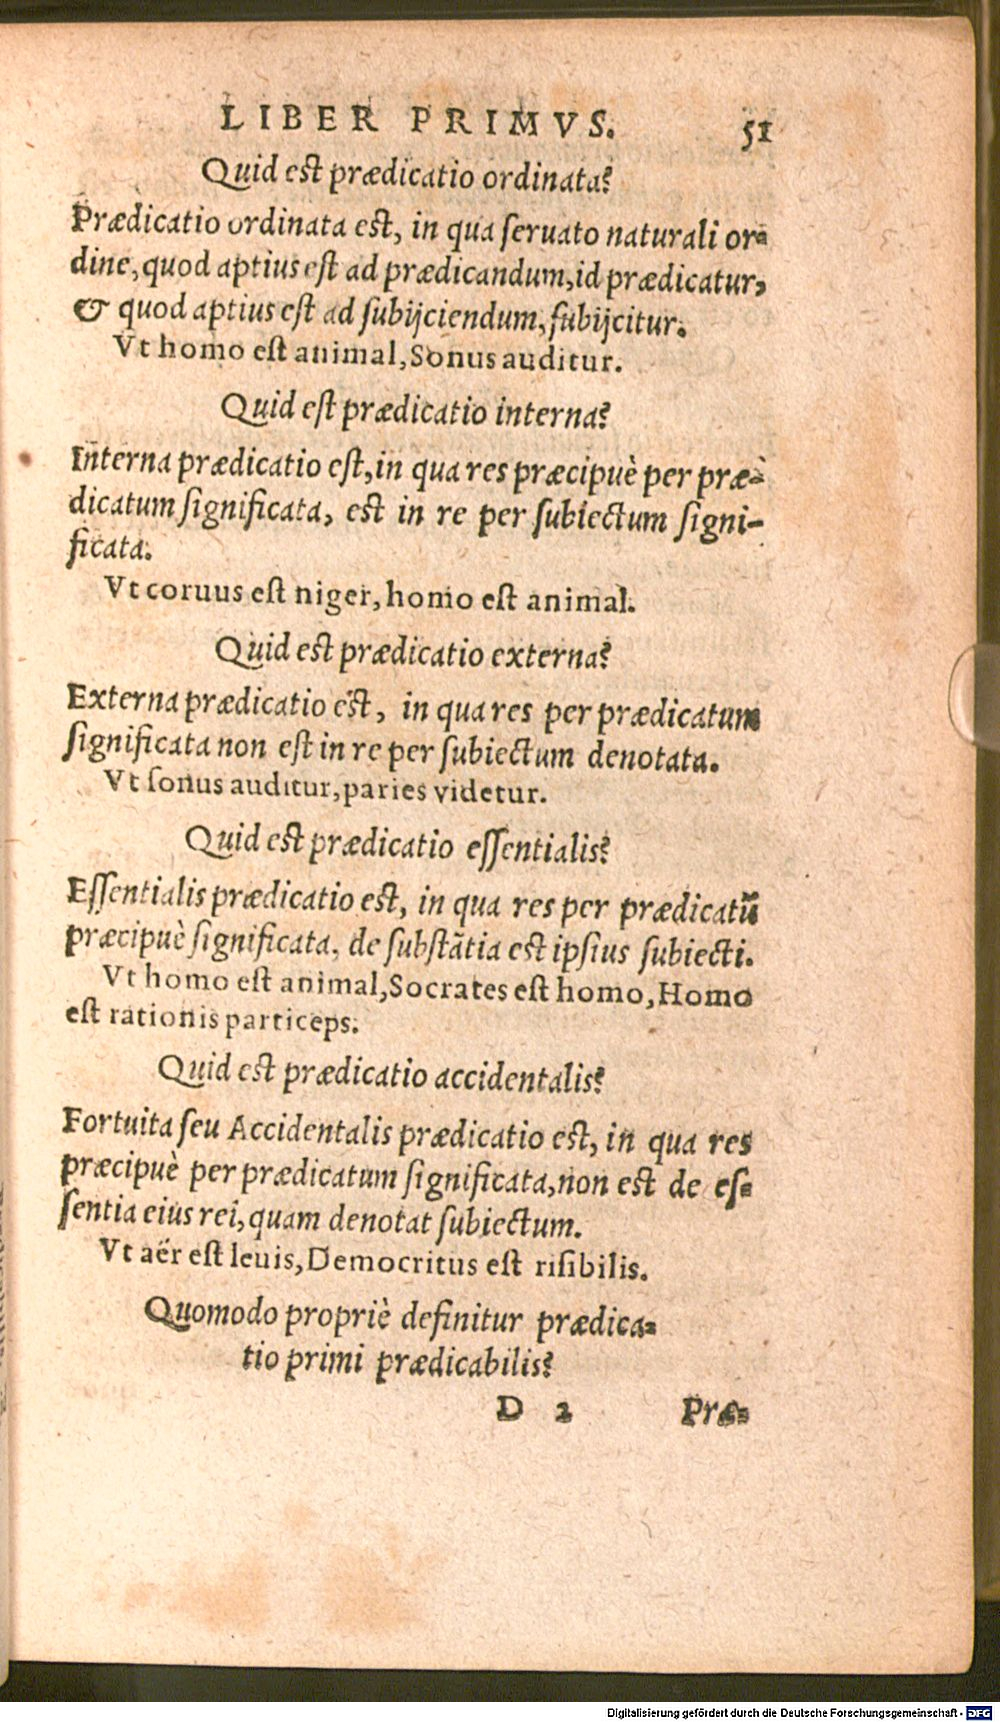 LIBER PRIMVS. 51
Quid est prædicatio ordinata?
Prædicatio ordinata est, in qua seruato naturali or-
dine, quod aptius est ad prædicandum, id prædicatur,
& quod aptius est ad subijciendum, subijcitur.
Vt homo est animal, Sonus auditur.
Quid est prædicatio interna?
Interna prædicatio est, in qua res præcipuè per præ-
dicatum significata, est in re per subiectum signi-
ficata.
Vt coruus est niger, homo est animal.
Quid est prædicatio externa?
Externa prædicatio est, in qua res per prædicatum
significata non est in re per subiectum denotata.
Vt sonus auditur, paries videtur.
Quid est prædicatio essentialis?
Essentialis prædicatio est, in qua res per prædicatū
præcipuè significata, de substātia est ipsius subiecti.
Vt homo est animal, Socrates est homo, Homo
est rationis particeps.
Quid est prædicatio accidentalis?
Fortuita seu Accidentalis prædicatio est, in qua res
præcipuè per prædicatum significata, non est de es-
sentia eius rei, quam denotat subiectum.
Vt aër est leuis, Democritus est risibilis.
Quomodo propriè definitur prædica-
tio primi prædicabilis?
D 2 Præ-
Digitalisierung gefördert durch die Deutsche Forschungsgemeinschaft - DFG